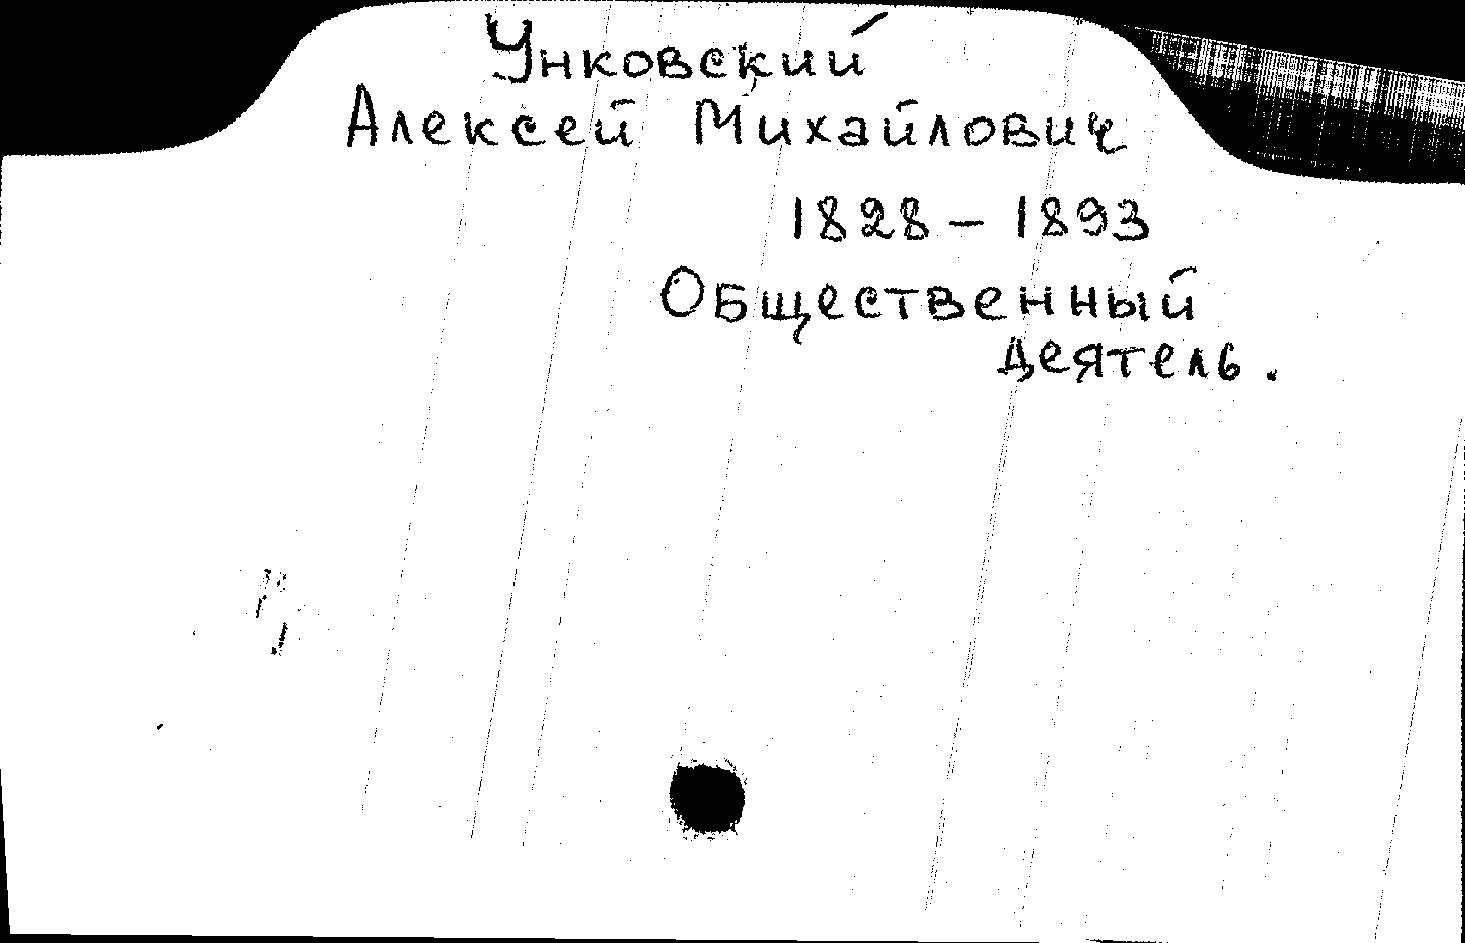 Унковский
Алексей Михайлович
1828 – 1893
Общественный
деятель.